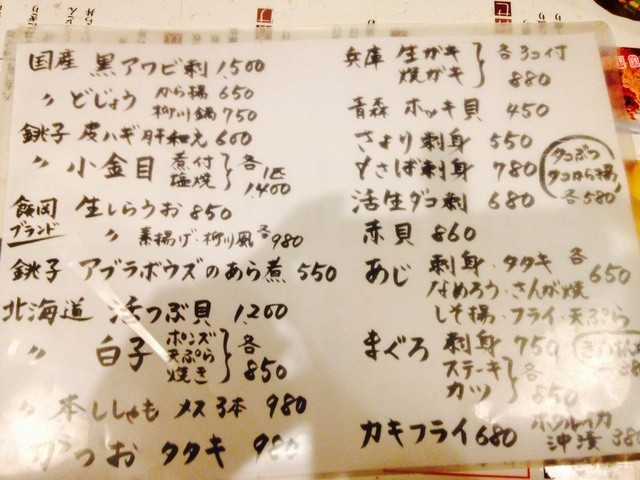 国産 黒アワビ刺 1,500
〃 どじょう から揚 650
柳川鍋 750
銚子 皮ハギ肝和え 600
〃 小金目 煮付 塩焼 各1匹 1,400
飯岡ブランド 生しらうお 850
〃 素揚げ・柳川風 各980
銚子 アブラボウズのあら煮 550
北海道 活つぶ貝 1,200
〃 白子 ポンズ 天ぷら 焼き 各850
〃 本ししゃも メス3本 980
かつお タタキ 980
兵庫 生ガキ 焼ガキ 各3コ付 880
青森 ホッキ貝 450
さより刺身 550
すさば刺身 780
活生ダコ刺 680
タコぶつ
タコから揚
各580
赤貝 860
あじ 刺身・タタキ 各650
なめろう・さんが焼
しそ揚・フライ・天ぷら
まぐろ 刺身 750
ステーキ カツ 各850
カキフライ 680
ホタルイカ
沖漬 380